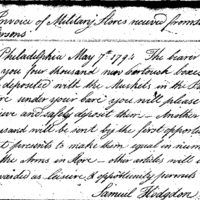 Invoice of Military Stores received from
Persons
Philadelphia May 7th 1794 The bearer
you four thousand new cartouch boxes
deposited with the Muskets in the
under your care you will please
and safely deposit them - Another
thousand will be sent by the first opportu
presents to make them equal in num
the Arms in Store - other articles will
warded as leisure & opportunity permits
Samuel Hodgdon